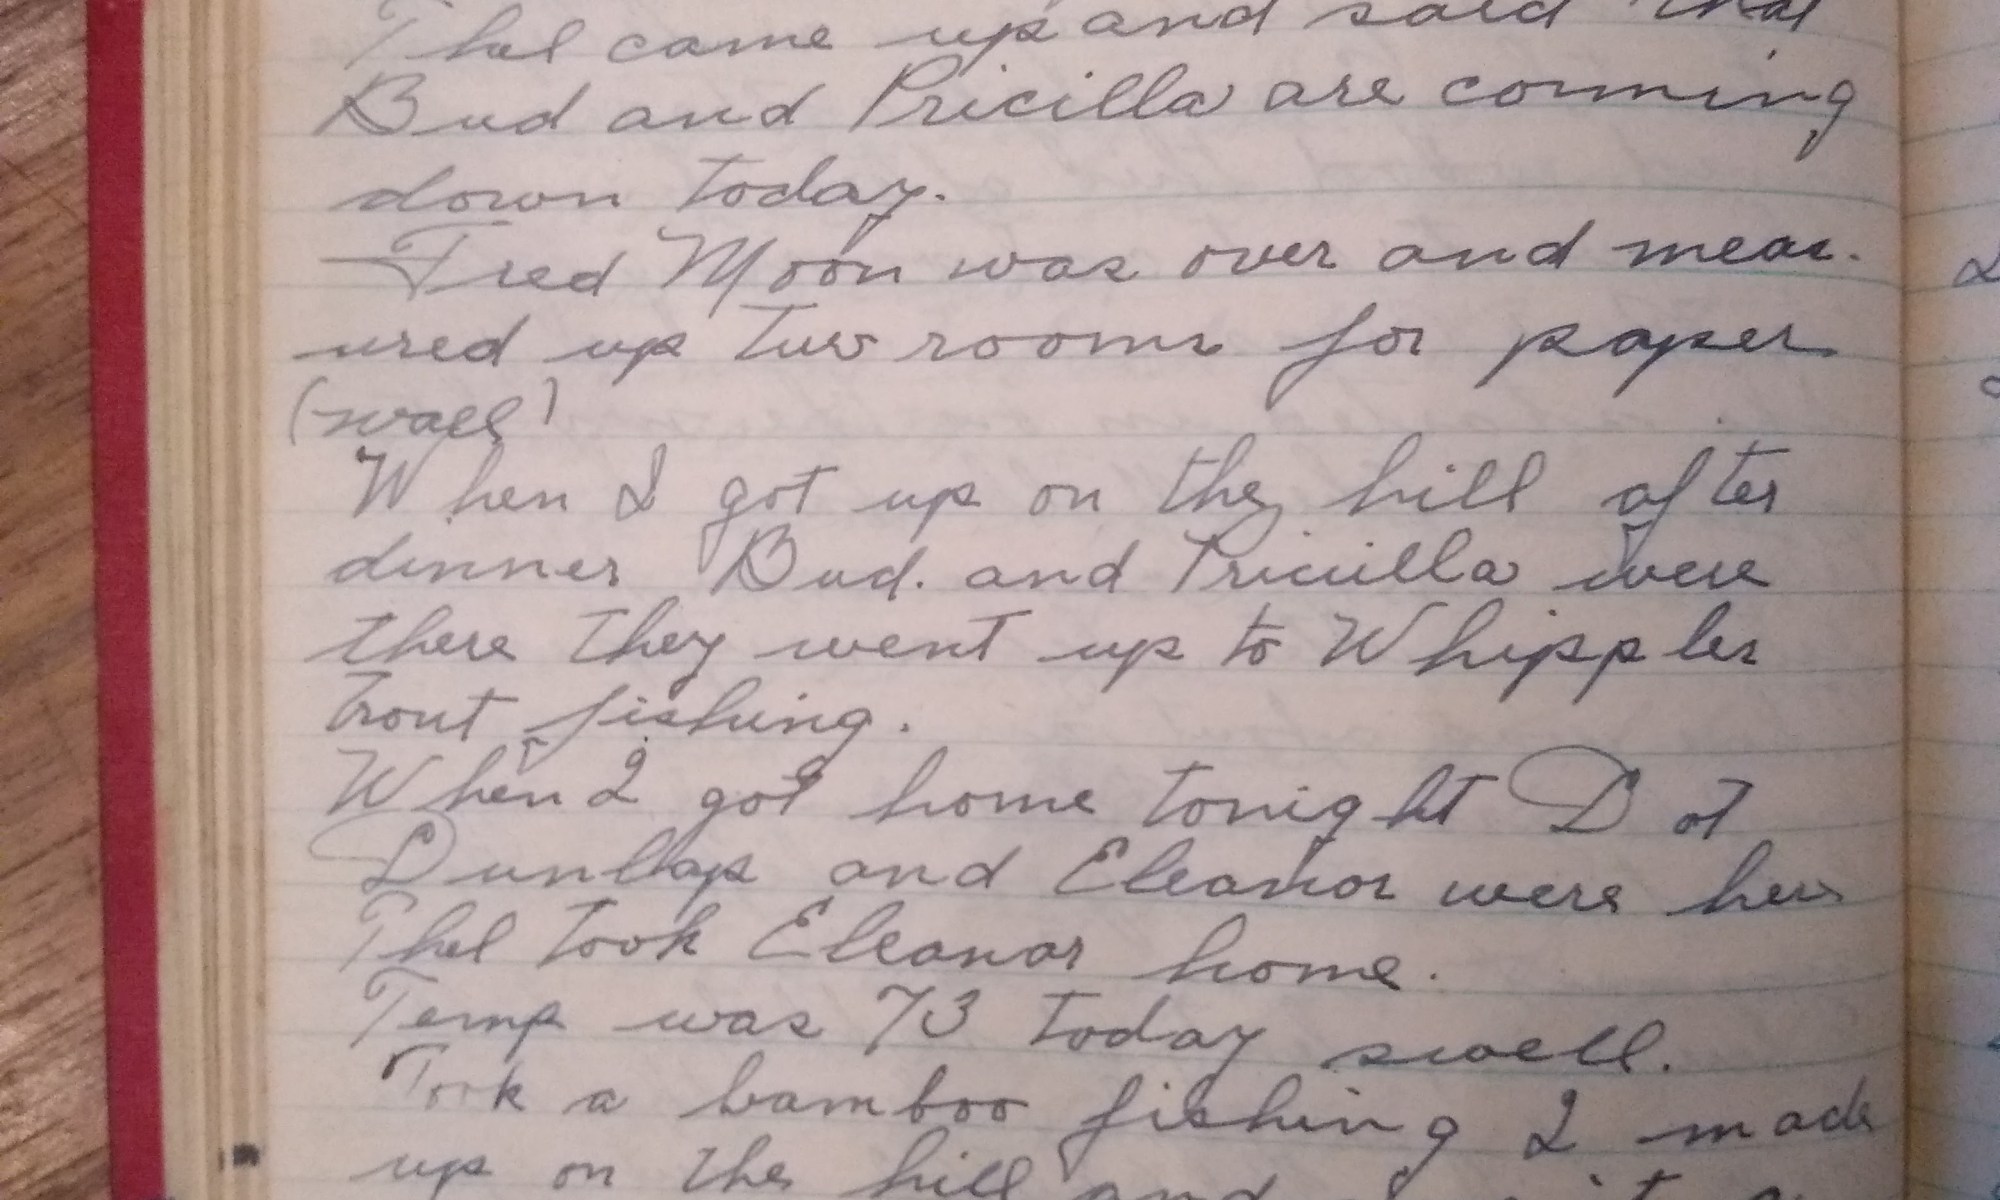 Thel came up and said that
Bud and Pricilla are comming
down today.
Fred Moon was over and meas-
ured up two rooms for paper
(wall)
When I got up on the hill after
dinner Bud. and Pricilla were
there they went up to Whipples
trout fishing.
When I got home tonight Dot
Dunlap and Eleanor were here
Thel took Eleanor home.
Temp was 73 today swell.
Took a bamboo fishing I made
up on the hill and